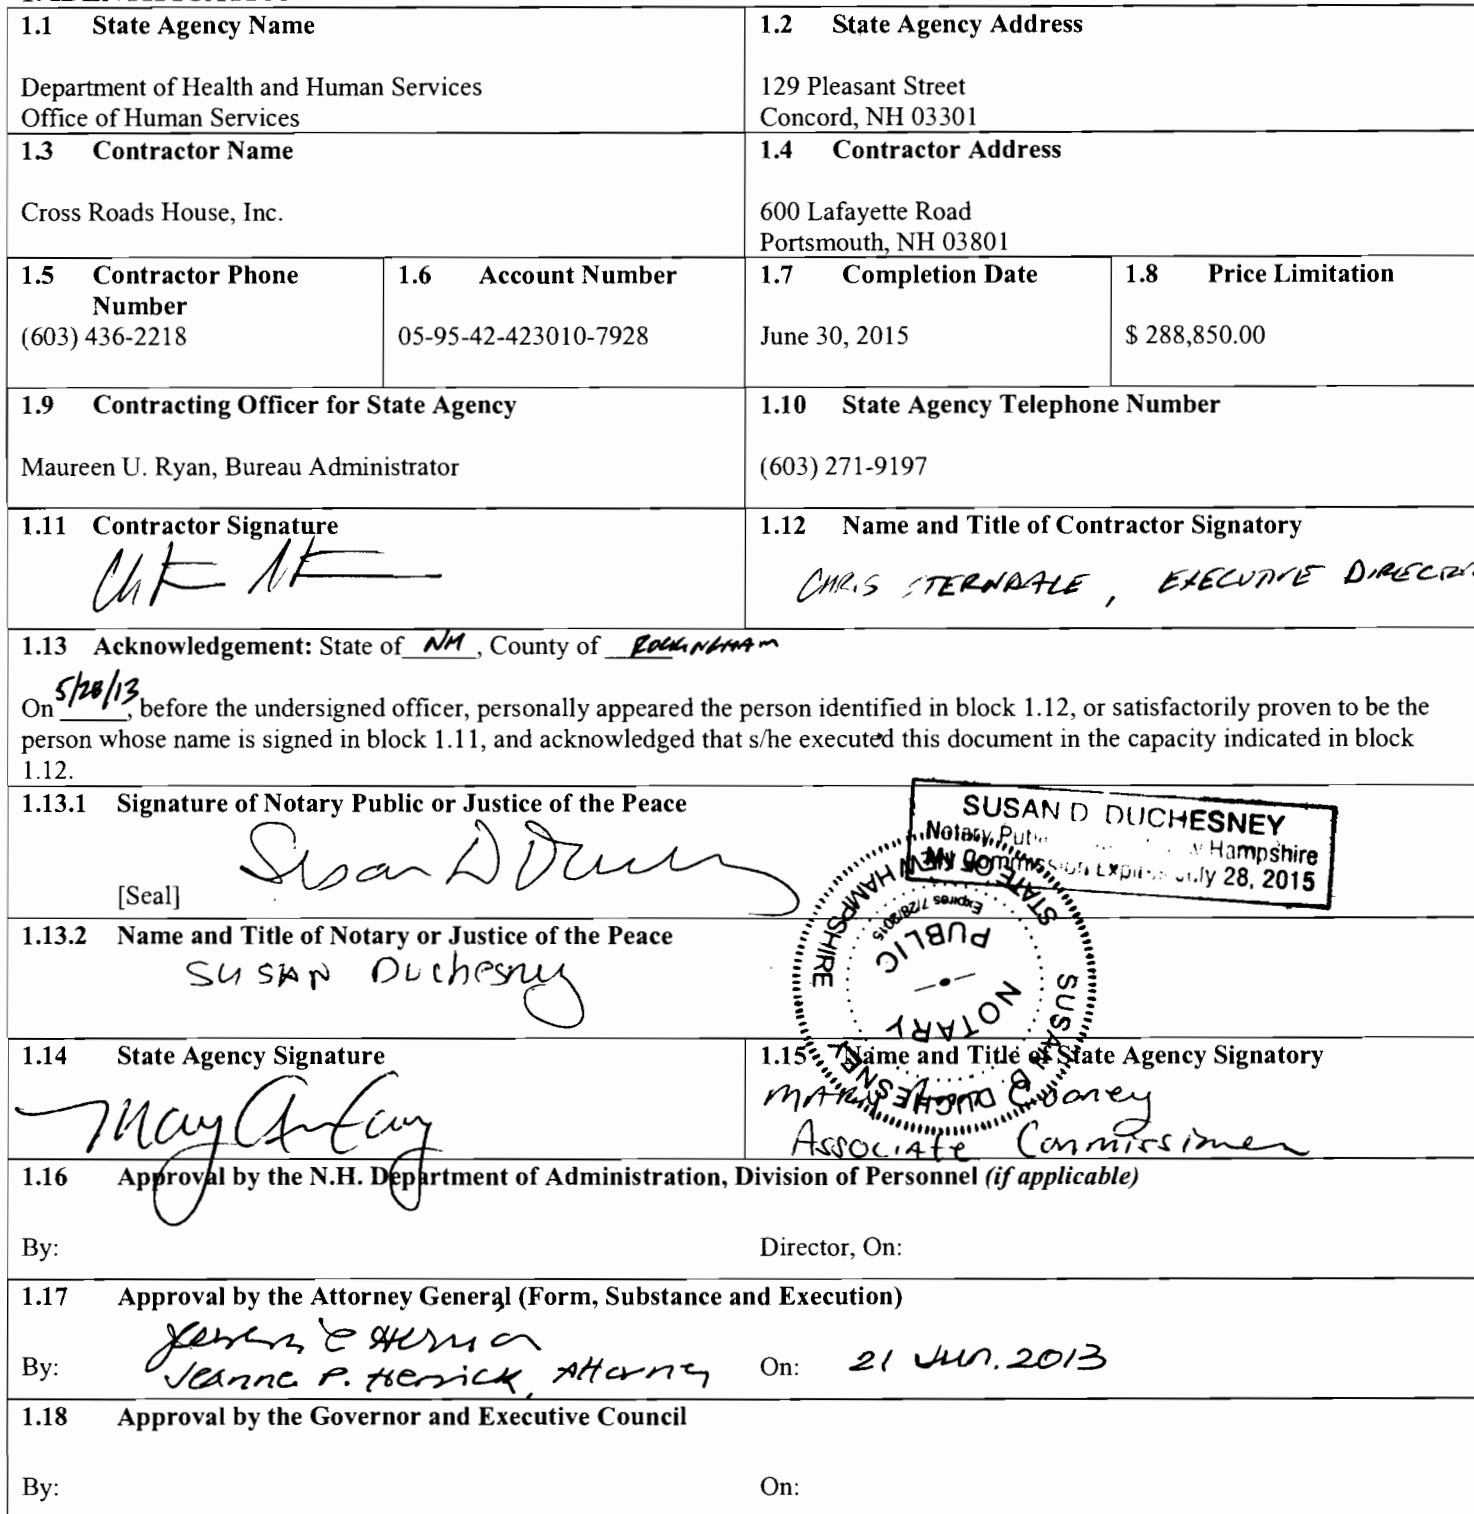 1.1 State Agency Name
Department of Health and Human Services
Office of Human Services
1.2 State Agency Address
129 Pleasant Street
Concord, NH 03301
1.3 Contractor Name
Cross Roads House, Inc.
1.4 Contractor Address
600 Lafayette Road
Portsmouth, NH 03801
1.5 Contractor Phone
Number
(603) 436-2218
1.6 Account Number
05-95-42-423010-7928
1.7 Completion Date
June 30, 2015
1.8 Price Limitation
$ 288,850.00
1.9 Contracting Officer for State Agency
Maureen U. Ryan, Bureau Administrator
1.10 State Agency Telephone Number
(603) 271-9197
1.11 Contractor Signature
1.12 Name and Title of Contractor Signatory
CHRIS STERNDALE, EXECUTIVE DIRECTOR
1.13 Acknowledgement: State of NH, County of ROCKINGHAM
On 5/28/13, before the undersigned officer, personally appeared the person identified in block 1.12, or satisfactorily proven to be the
person whose name is signed in block 1.11, and acknowledged that s/he executed this document in the capacity indicated in block
1.12.
1.13.1 Signature of Notary Public or Justice of the Peace
Susan D
[Seal]
SUSAN D DUCHESNEY
Notary Hampshire
My Commission Expires July 28, 2015
STATE OF NEW HAMPSHIRE
Expires 7/28/2015
NOTARY
PUBLIC
SUSAN D DUCHESNEY
1.13.2 Name and Title of Notary or Justice of the Peace
SUSAN Duchesney
1.14 State Agency Signature
1.15 Name and Title of State Agency Signatory
Mary Ann Cooney
Associate Commissioner
1.16 Approval by the N.H. Department of Administration, Division of Personnel (if applicable)
By: Director, On:
1.17 Approval by the Attorney General (Form, Substance and Execution)
By: Jeanne P. Herrick, Attorney On: 21 Jun. 2013
1.18 Approval by the Governor and Executive Council
By: On: